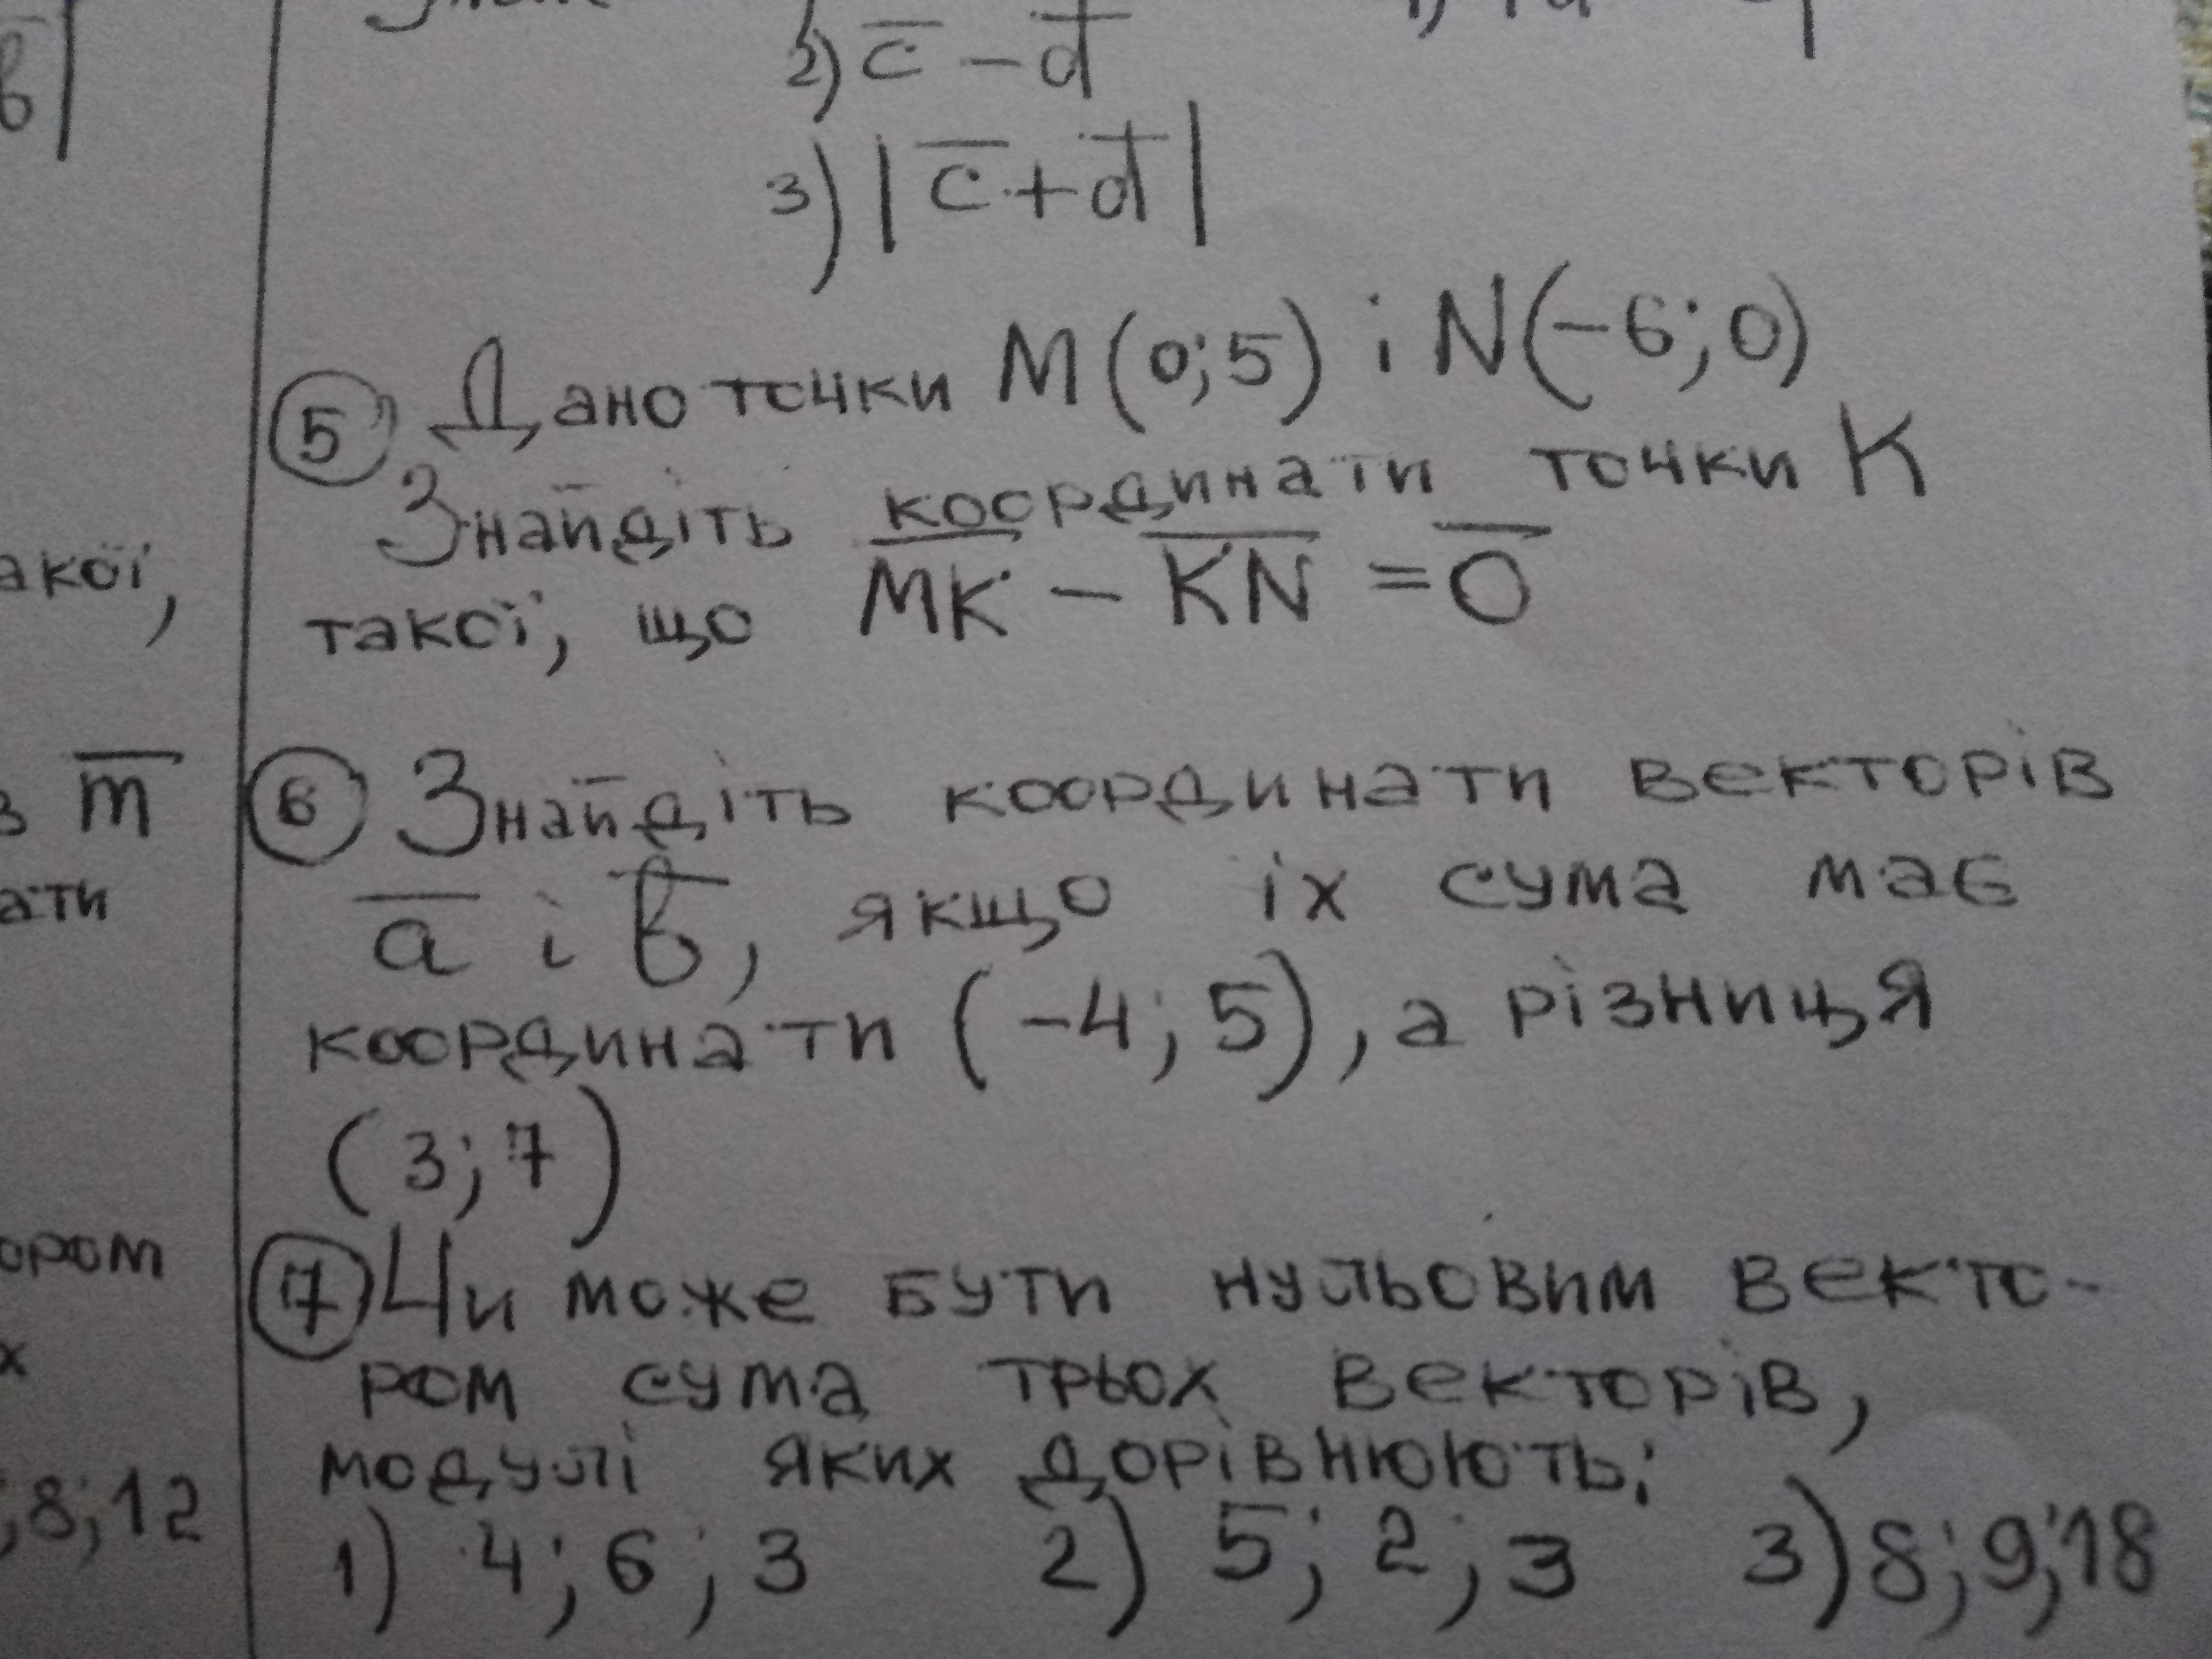 2) c̅ – d̅
3) |c̅ + d̅|
5 Дано точки М(0;5) і N(–6;0)
Знайдіть координати точки К
такої, що M̅K̅ – K̅N̅ = 0̅
6 Знайдіть координати векторів
a̅ і b̅, якщо їх сума має
координати (–4; 5), а різниця
(3; 7)
7 Чи може бути нульовим векто-
ром сума трьох векторів,
модулі яких дорівнюють:
1) 4; 6; 3 2) 5; 2; 3 3) 8; 9; 18
акої,
m̅
ати
ором
х
;8;12